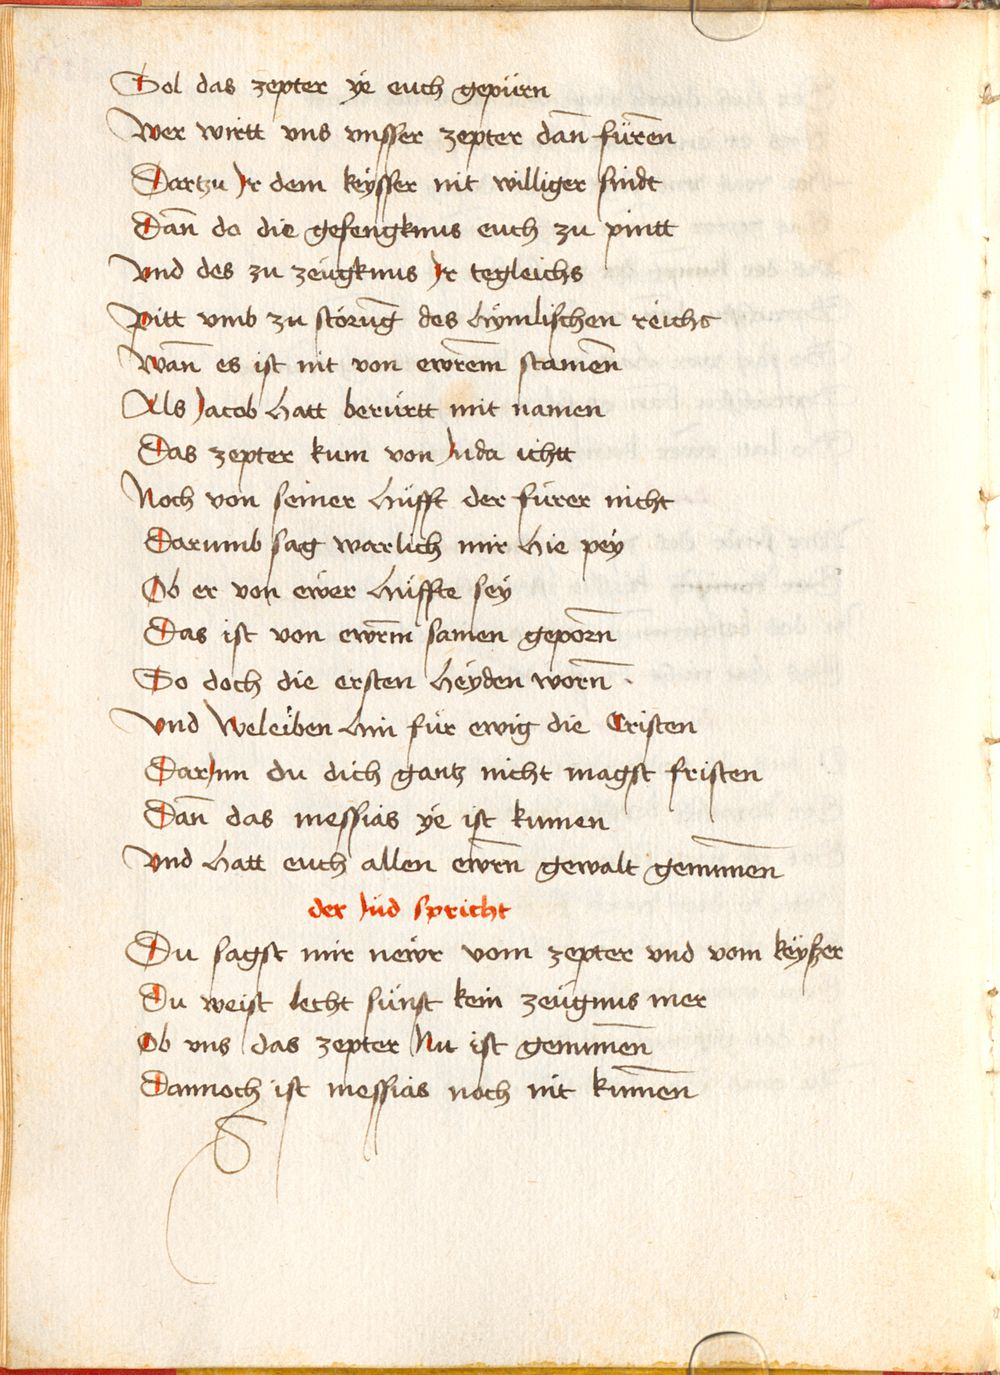 Sol das zepter ye euch gepürn
Wer wirtt vns vnsser zepter dan̄ fürēn
Dartzu Jr dem keÿsser nit williger sindt
Dan̄ da die gefengknus euch zu pintt
Vnd des zu zeügknus Jr tegleichs
Pitt vmb zu störūg des hÿmlischen reichs
Wan̄ es ist nit von ewrēm stamēn
Als Jacob hatt berürtt mit namen
Das zepter kum von Juda ichtt
Noch von seiner hüfft der fürer nicht
Darumb sag warlich mir hie pey
Ob er von ewer hüffte seÿ
Das ist von ewrm̄ samen geporn̄
So doch die ersten heÿden worn̄
Vnd Weleiben hin für ewig die Cristen
DarJnn du dich gantz nicht magst fristen
Dan̄ das messias ye ist kumen
Vnd hatt euch allen ewrn̄ gewalt genumēn
der Jüd spricht
Du sagst mir newr vom zepter vnd vom keÿszer
Du weist lecht sünst kein zeügnus mer
Ob vns das zepter Nu ist genumēn
Dannoch ist messias noch nit kumēn